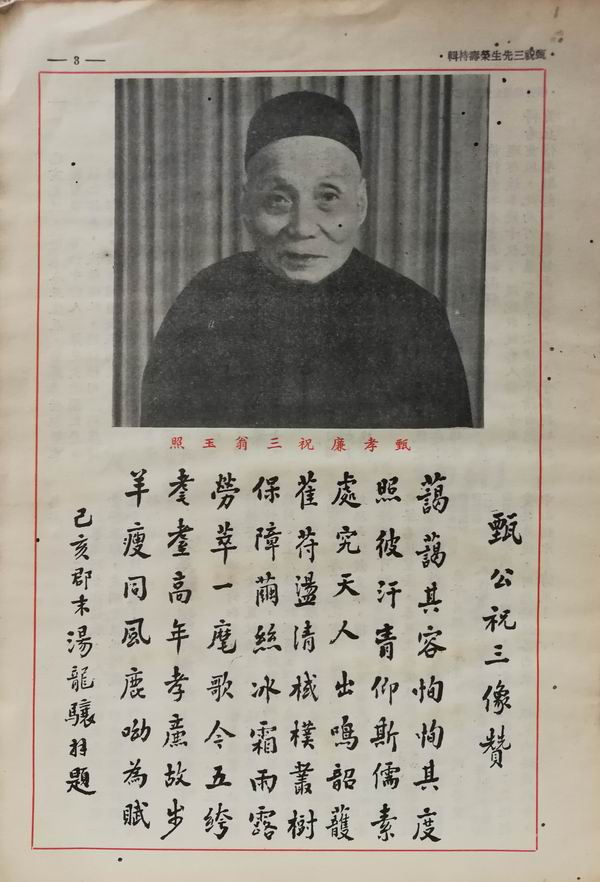 甄祝三先生榮壽特輯
— 3 —
甄孝廉祝三翁玉照
甄公祝三像贊
藹藹其容恂恂其度
照彼汗青仰斯儒素
處究天人出鳴韶頀
萑苻盪清棫樸叢樹
保障繭絲冰霜雨露
勞萃一麾歌今五絝
耄耋高年孝廉故步
羊瘦同風鹿呦為賦
己亥郡末湯龍驤拜題